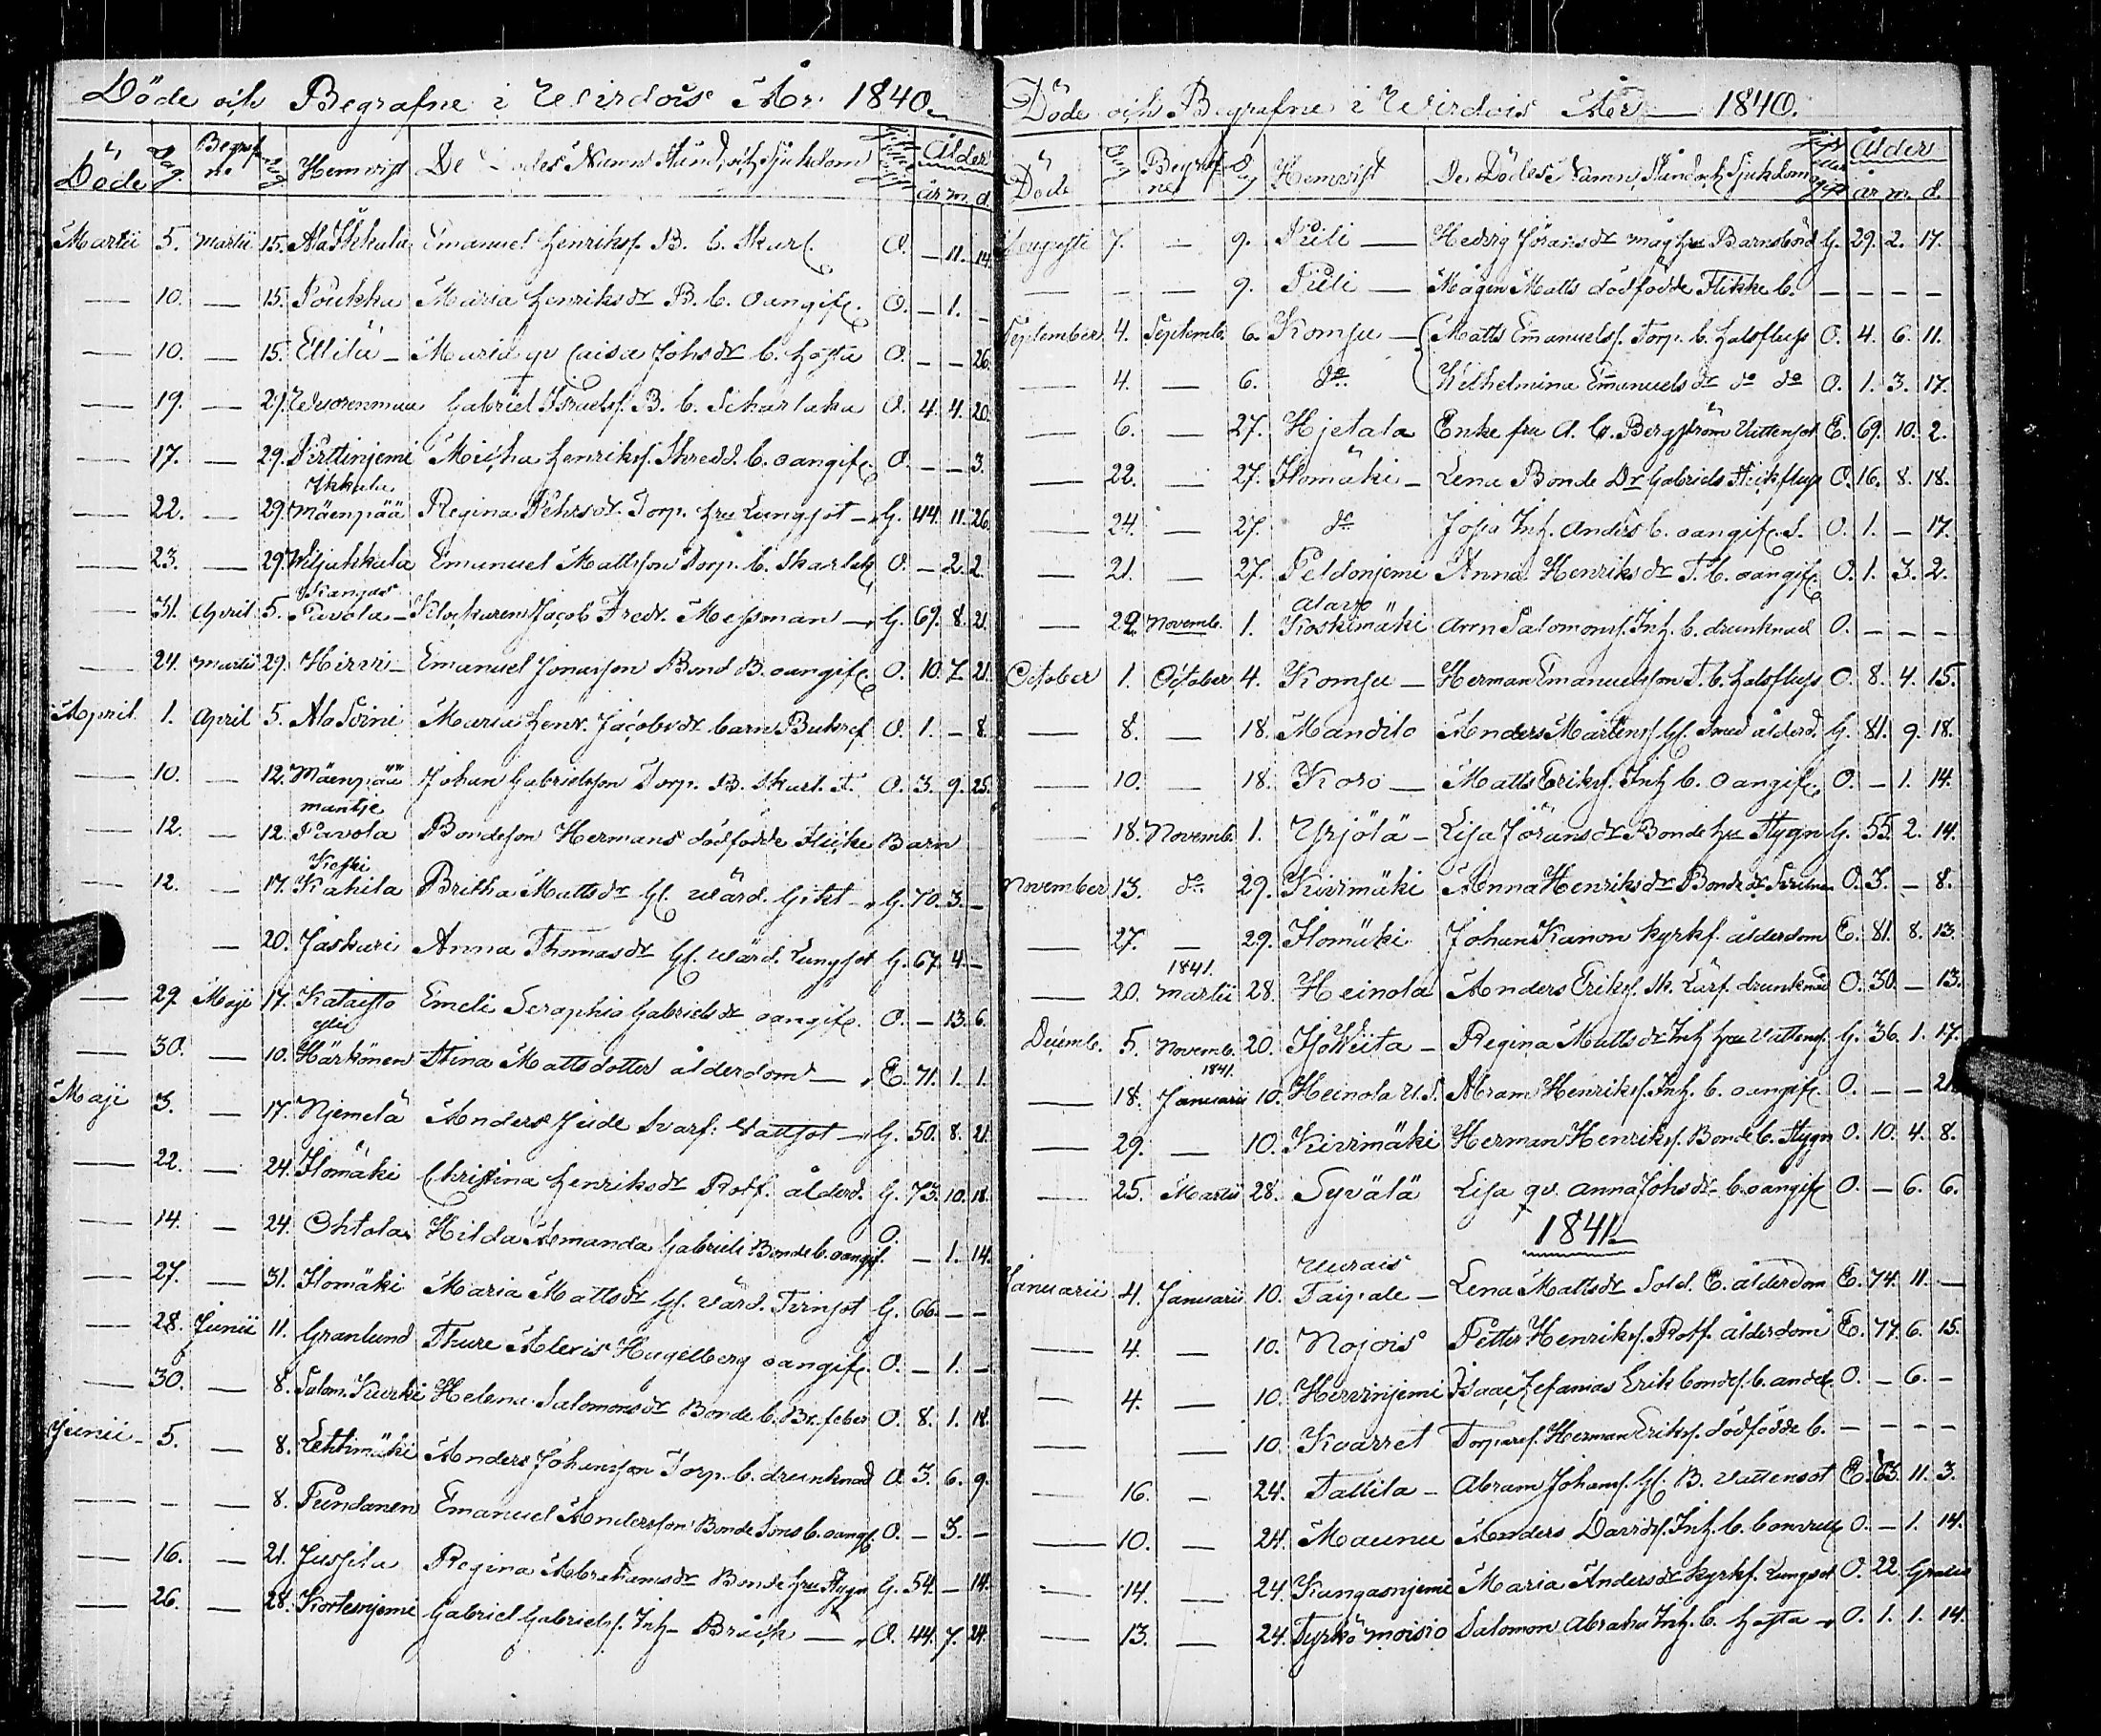 Döde och Begrafne i Wirdois År 1840.
Döde Dag Begrafne Dag Hemvist De Dödes Namn, Stånd och Sjukdom Ålder
år m. d.
Martii 5. Martii 15. Ala Ikkala Emanuel Henrikss. B. b. Skarl. O. — 11. 14.
— 10. — 15. Poukka Maria Henriksdr B. b. oangifv. O. — 1. —
— 10. — 15. Ellilä — Maria qv Caisa Johsdr b. Hosta O. — — 26.
— 19. — 29. Wuorenmaa Gabriel Israelss. B. b. Scharlaka O. 4. 4. 20.
— 17. — 29. Perttinjemi Micha Henrikss. Skredd. b. oangifv. O. — — 3.
Ikkala
— 22. — 29. Mäenpää Regina Pehrsdr Torp. hru Lungsot — G. 44. 11. 26.
— 23. — 29. Wiljakkala Emanuel Mattsson Torp. b. Skarlak O. — 2. 2.
Kangas
— 31. April 5. Pavola — Klockaren Jacob Fredr. Messman — G. 69. 8. 21.
— 24. Martii 29. Hirvi — Emanuel Jonasson Bond B. oangifv. O. 10. 7. 21.
April 1. April 5. Ala Soini Maria Henr. Jacobsdr barn Bukref O. 1. — 8.
— 10. — 12. Mäenpää Johan Gabrielsson Torp. B. Skarl. F. O. 3. 9. 25.
mantje
— 12. — 12. Pavola Bondeson Hermans dödfödde Flicke Barn
Koski
— 12. — 17. Kahila Britha Mattsdr Gl. Wärd. Gikt — G. 70. 3. —
— 20. Jaskari Anna Thomasdr Gl. Wärd. Lungsot G. 67. 4. —
— 29. Maji 17. Katajisto Emeli Seraphia Gabrielsdr oangifv. O. — 13. 6.
yli
— 30. — 10. Härkönen Stina Mattsdotter ålderdom — E. 71. 1. 1.
Maji 3. — 17. Njemelä Anders Jude Svarf: Vattsot — G. 50. 8. 21.
— 22. — 24. Ilomäki Christina Henriksdr Rotf. ålderd. G. 73. 10. 18.
— 14. — 24. Ohtola Hilda Amanda Gabrieli Bonde b. oangif. O. — 1. 14.
— 27. — 31. Ilomäki Maria Mattsdr Gl. Värd. Tvinsot G. 66. — —
— 28. Junii 11. Granlund Thure Alexis Hagelberg oangifv. O. — 1. —
— 30. — 8. Salom. Kurki Helena Salomonsdr Bonde b. Br. feber O. 8. 1. 18.
Junii — 5. — 8. Lehtimäki Anders Johansson Torp. b. drunknad O. 3. 6. 9.
— — — 8. Pundanen Emanuel Andersson Bonde Sons b. oangf. O. — 3. —
— 16. — 21. Jussila Regina Abrahamsdr Bonde hru Stygn G. 54. — 14.
— 26. — 28. Kortesnjemi Gabriel Gabrielss. Inh — Bråck — O. 44. 7. 24.
Döde och Begrafne i Wirdois År — 1840.
Döde Dag Begrafne Dag Hemvist De Dödes Namn, Stånd och Sjukdom gift eller ogift Ålder
år m. d.
Augusti 7. — 9. Puli — Hedvig Jöransdr måg hru Barnsbörd G. 29. 2. 17.
— — — 9. Puli — Mågen Matts dödfödde Flikke b. — — — —
September 4. Septemb. 6. Komsu — Matts Emanuelss. Torp. b. Halsfluss O. 4. 6. 11.
— 4. — 6. do Wilhelmina Emanuelsdr do do O. 1. 3. 17.
— 6. — 27. Hjetala Enke fru A. C. Bergström Vattensot E. 69. 10. 2.
— 22. — 27. Ilomäki — Lena Bonde Dr Gabriels Flickfluss O. 16. 8. 18.
— 24. — 27. do Josia Inh. Anders b. oangifv. S. O. 1. — 17.
— 21. — 27. Peldonjemi Anna Henriksdr T. b. oangifv. O. 1. 3. 2.
Alavo
— 29. Novemb. 1. Koskimäki Aron Salomonss. Inh. b. drunknad O. — — —
October 1. October 4. Komsu — Herman Emanuelsson T. b. Halsfluss O. 8. 4. 15.
— 8. — 18. Mandilo Anders Mårtenss. Gl. Smed ålderd. G. 81. 9. 18.
— 10. — 18. Koro — Matts Erikss. Inh b. oangifv. O. — 1. 14.
— 18. Novemb. 1. Yrjölä — Lisa Jöransdr Bonde hru Stygn G. 55. 2. 14.
November 13. do 29. Kivimäki Anna Henriksdr Bonde dr O. 3. — 8.
— 27. — 29. Ilomäki Johan Kanon kyrkf. ålderdom E. 81. 8. 13.
1841.
— 20. Martii 28. Heinola Anders Erikss. Sk. Lärf. drunknad O. 30. — 13.
Decemb. 5. Novemb. 20. Regina Mattsdr Inh hru Vattens. G. 36. 1. 17.
1841.
— 18. Januarii 10. Heinola U. S. Abram Henrikss. Inh. b. oangifv. O. — — 21.
— 29. — 10. Kivimäki Herman Henrikss. Bonde b. Stygn O. 10. 4. 8.
— 25. Martii 28. Syvälä Lisa qv. Anna Johsdr b. oangifv O. — 6. 6.
1841.
Uurais
Januarii 4. Januarii 10. Taipale — Lena Mattsdr Sold. E. ålderdom E. 74. 11. —
— 4. — 10. Nojois Petter Henrikss. Rotf. ålderdom E. 77. 6. 15.
— 4. — 10. Hervinjemi Isaac Zefanias Erik bondes. b. O. — 6. —
— — 10. Kvarret Torpares. Herman Erikss. dödfödde b. — — — —
— 16. — 24. Tallila — Abram Johanss. Gl. B. Vattensot E. 63. 11. 3.
— 10. — 24. Maunu Anders Davids. Inh. b. Convuls O. — 1. 14.
— 14. — 24. Kangasnjemi Maria Andersdr kyrkf. Lungsot O. 22. Gratis
— 13. — 24. Tyrkö moisio Salomon Abraha Inh. b. Hosta — O. 1. 1. 14.